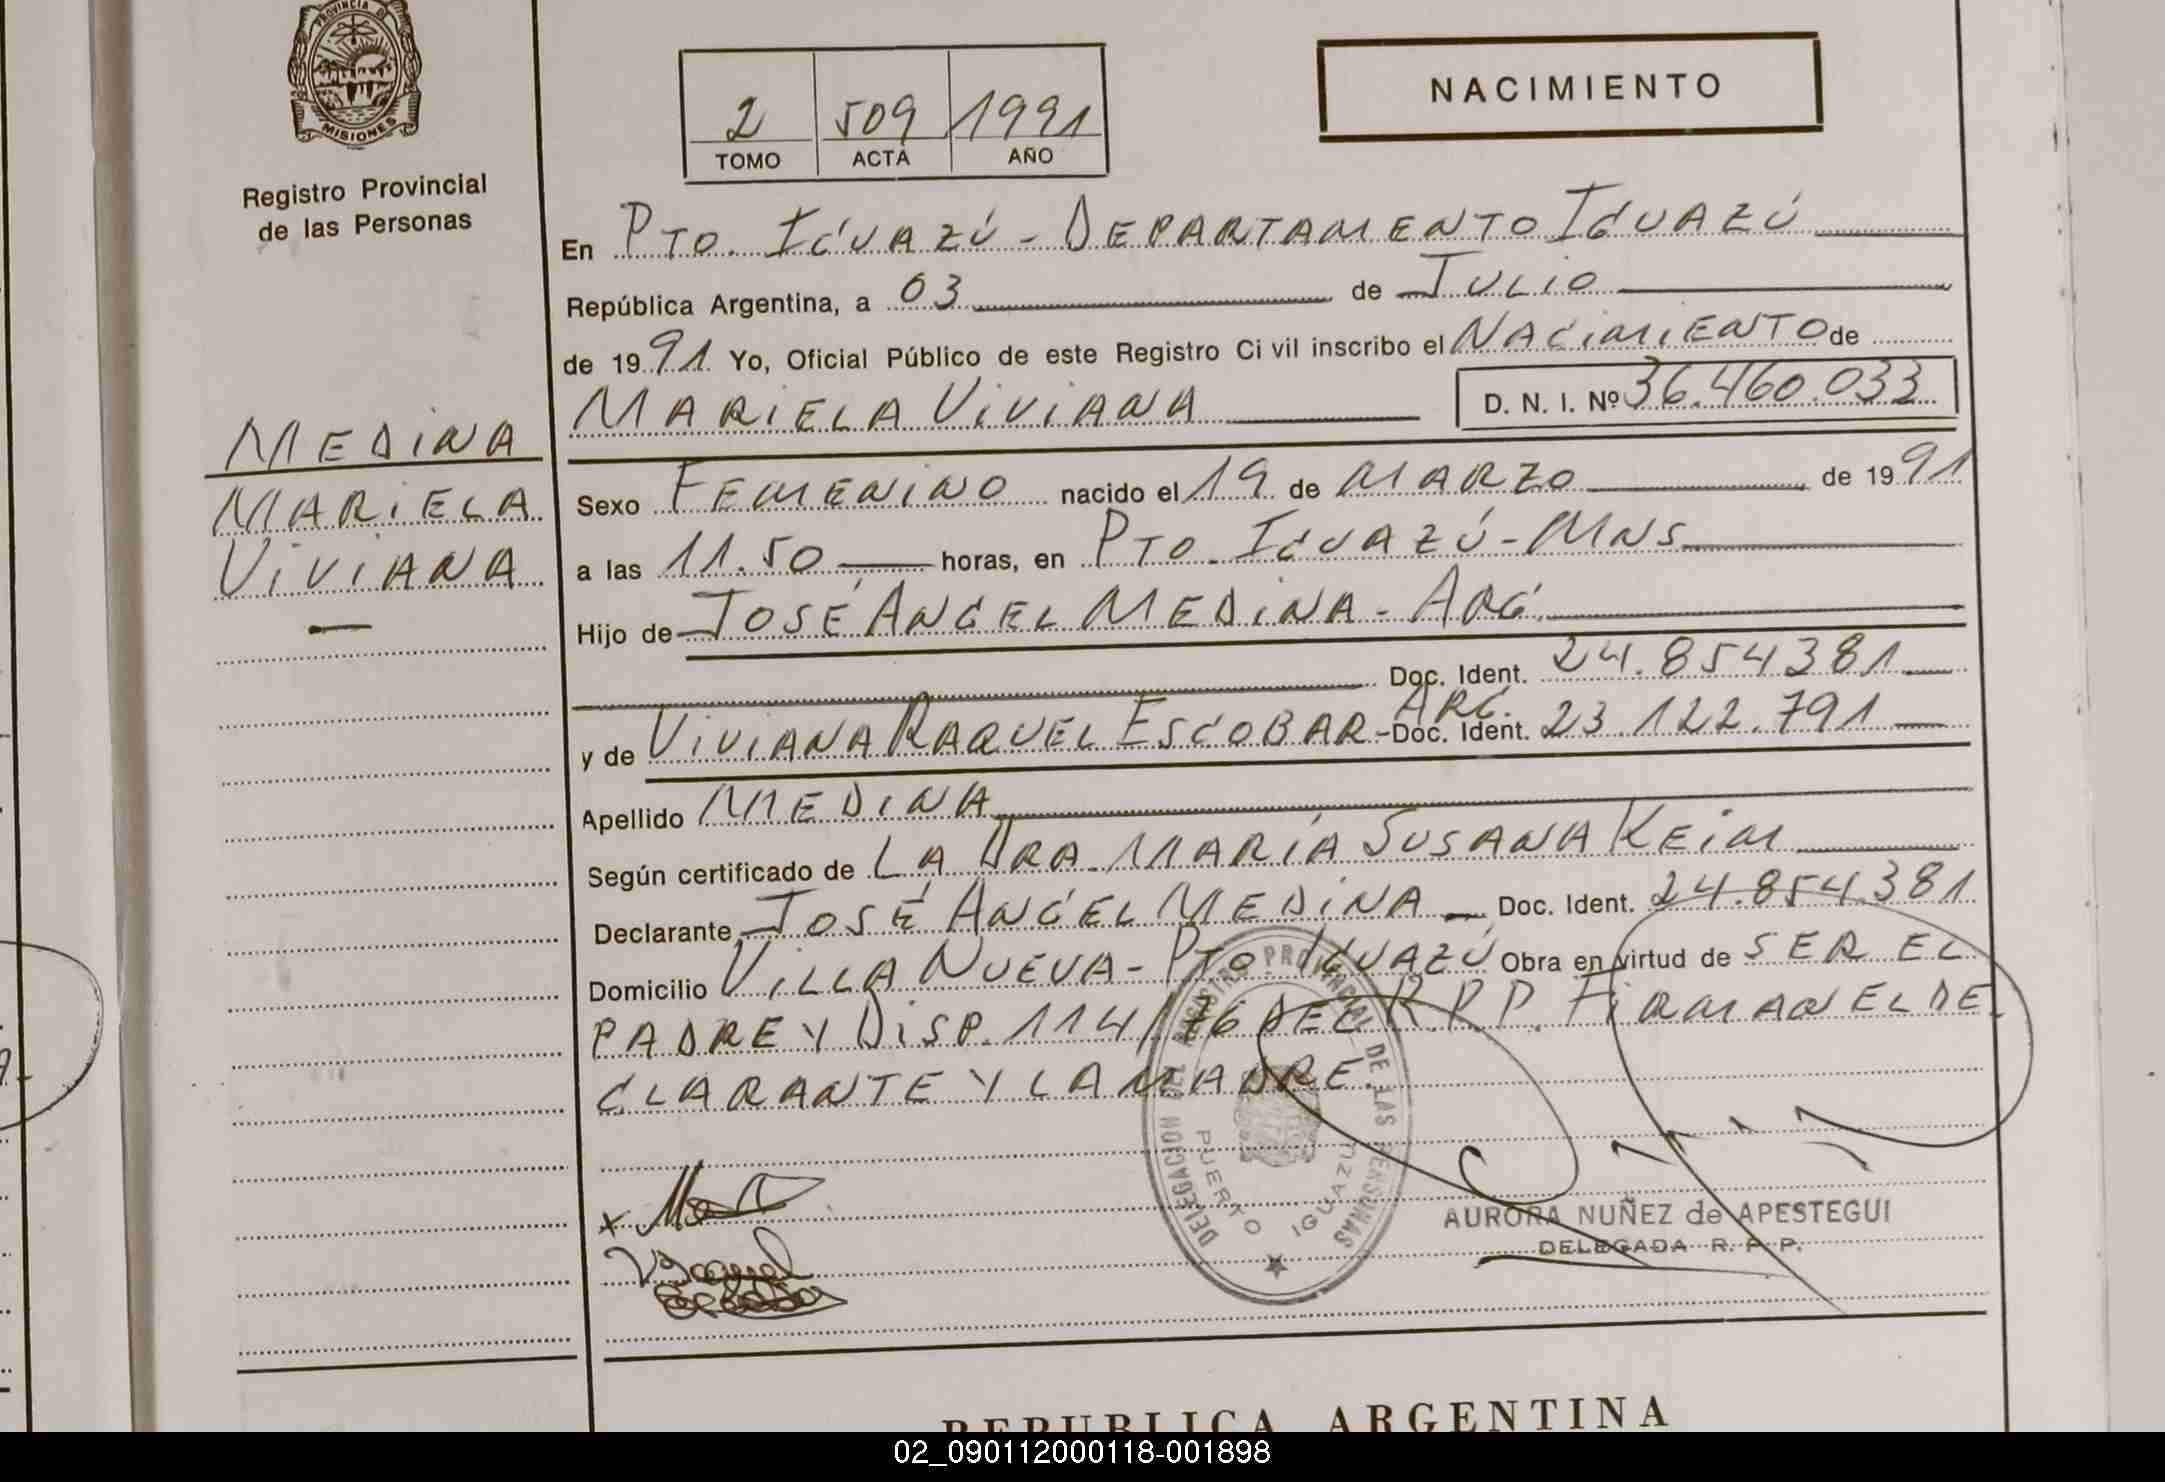 PROVINCIA DE
MISIONES
Registro Provincial
de las Personas
MEDINA
MARIELA
VIVIANA
2 509 1991
TOMO ACTA AÑO
NACIMIENTO
En PTO. IGUAZÚ - DEPARTAMENTO IGUAZÚ
República Argentina, a 03 de JULIO
de 1991 Yo, Oficial Público de este Registro Civil inscribo el NACIMIENTO de
MARIELA VIVIANA D. N. I. Nº 36.460.033
Sexo FEMENINO nacido el 19 de MARZO de 1991
a las 11.50 horas, en PTO. IGUAZÚ - MNS
Hijo de JOSÉ ANGEL MEDINA - ARG.
Doc. Ident. 24.854.381
ARG.
y de VIVIANA RAQUEL ESCOBAR - Doc. Ident. 23.122.791
Apellido MEDINA
Según certificado de LA DRA. MARÍA SUSANA KEIM
Declarante JOSÉ ANGEL MEDINA Doc. Ident. 24.854.381
Domicilio VILLA NUEVA - PTO IGUAZÚ Obra en virtud de SER EL
PADRE Y DISP. 114/76 DEL R.P.P. FIRMAN EL DE
CLARANTE Y LA MADRE.
DELEGACION DEL REGISTRO PROVINCIAL DE LAS PERSONAS
PUERTO IGUAZU
AURORA NUÑEZ de APESTEGUI
DELEGADA R. P. P.
REPUBLICA ARGENTINA
02_090112000118-001898